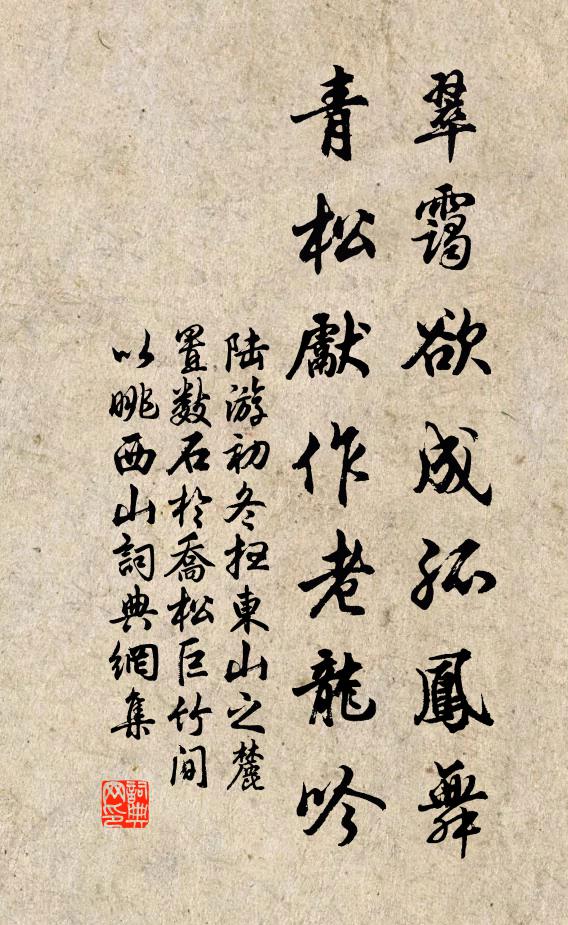 翠靄欲成孤鳳舞
青松獻作老龍吟
陆游初冬扫東山之麓
置数石於喬松巨竹间
以眺西山詞典網集
詞典
网印